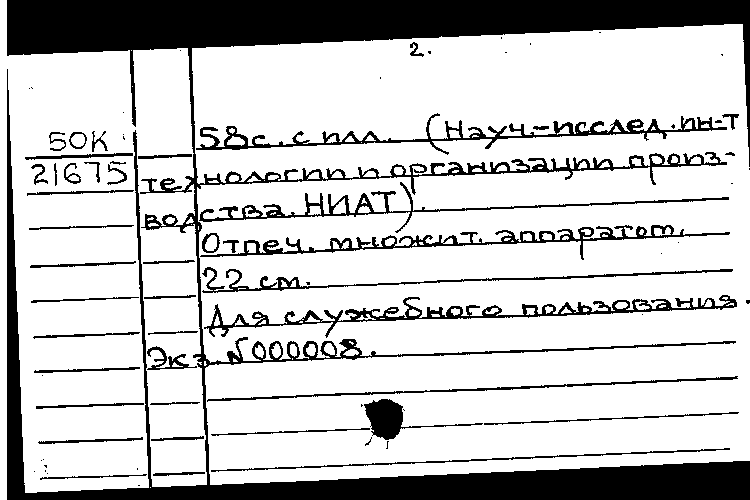 2.
50К
21675
58с. с илл. (Науч.-исслед. ин-т
технологии и организации произ-
водства. НИАТ).
Отпеч. множит. аппаратом.
22 см.
Для служебного пользования.
Экз. №000008.